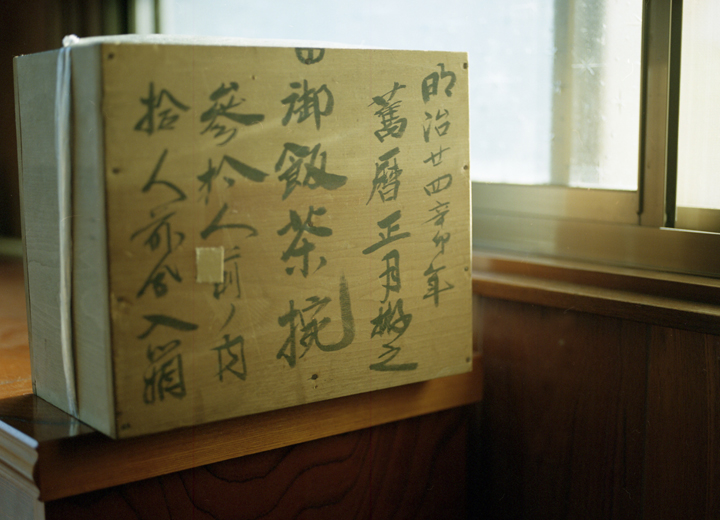 明治廿四辛卯年
舊暦正月撚之
御飯茶椀
參拾人前ノ内
拾人前入